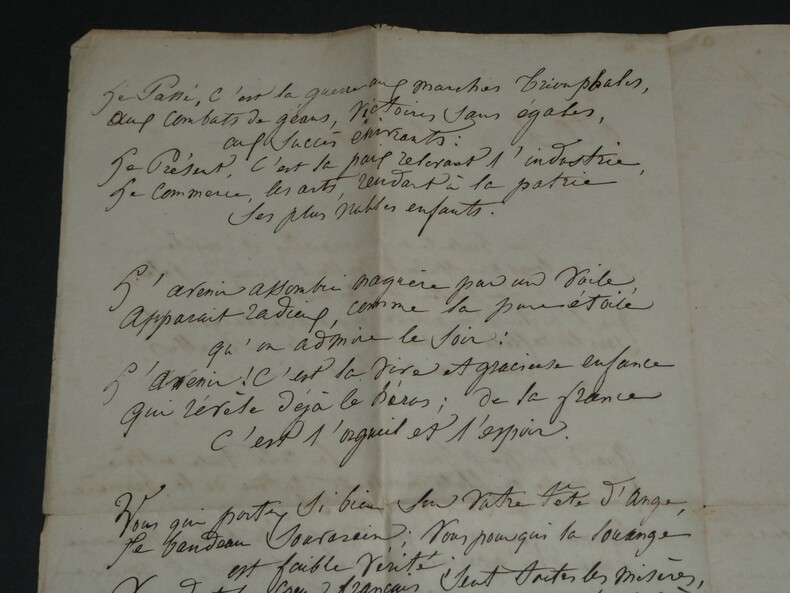 Le Passé, c'est la guerre aux marches triomphales,
aux combats de géans, victoires sans égales,
aux succès énivrants:
Le Présent, c'est la paix relevant l'industrie,
Le commerce, les arts, rendant à la patrie
Ses plus nobles enfants.
L'avenir assombri naguère par un voile
Apparait radieux, comme la pure étoile
qu'on admire le soir:
L'avenir! C'est la vive et gracieuse enfance
qui révèle déjà le héros; de la france
C'est l'orgueil et l'espoir.
Vous qui portez si bien sur votre tête d'Ange,
Le bandeau souverain; Vous pour qui la louange
est faible vérité
coeur français sent toutes les misères,